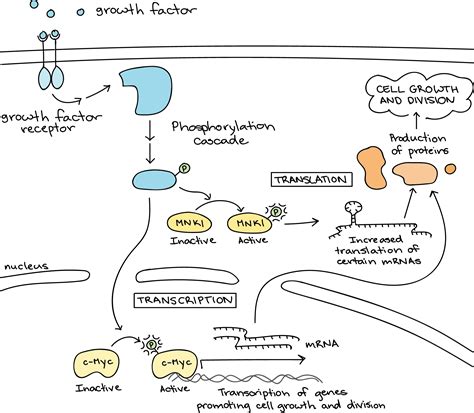 growth factor
growth factor
receptor
Phosphorylation
cascade
P
CELL GROWTH
AND DIVISION
Production
of proteins
TRANSLATION
MNK1
Inactive
MNK1
P
Active
Increased
translation of
certain mRNAs
nucleus
TRANSCRIPTION
mRNA
c-Myc
Inactive
P
c-Myc
Active
Transcription of genes
promoting cell growth and division